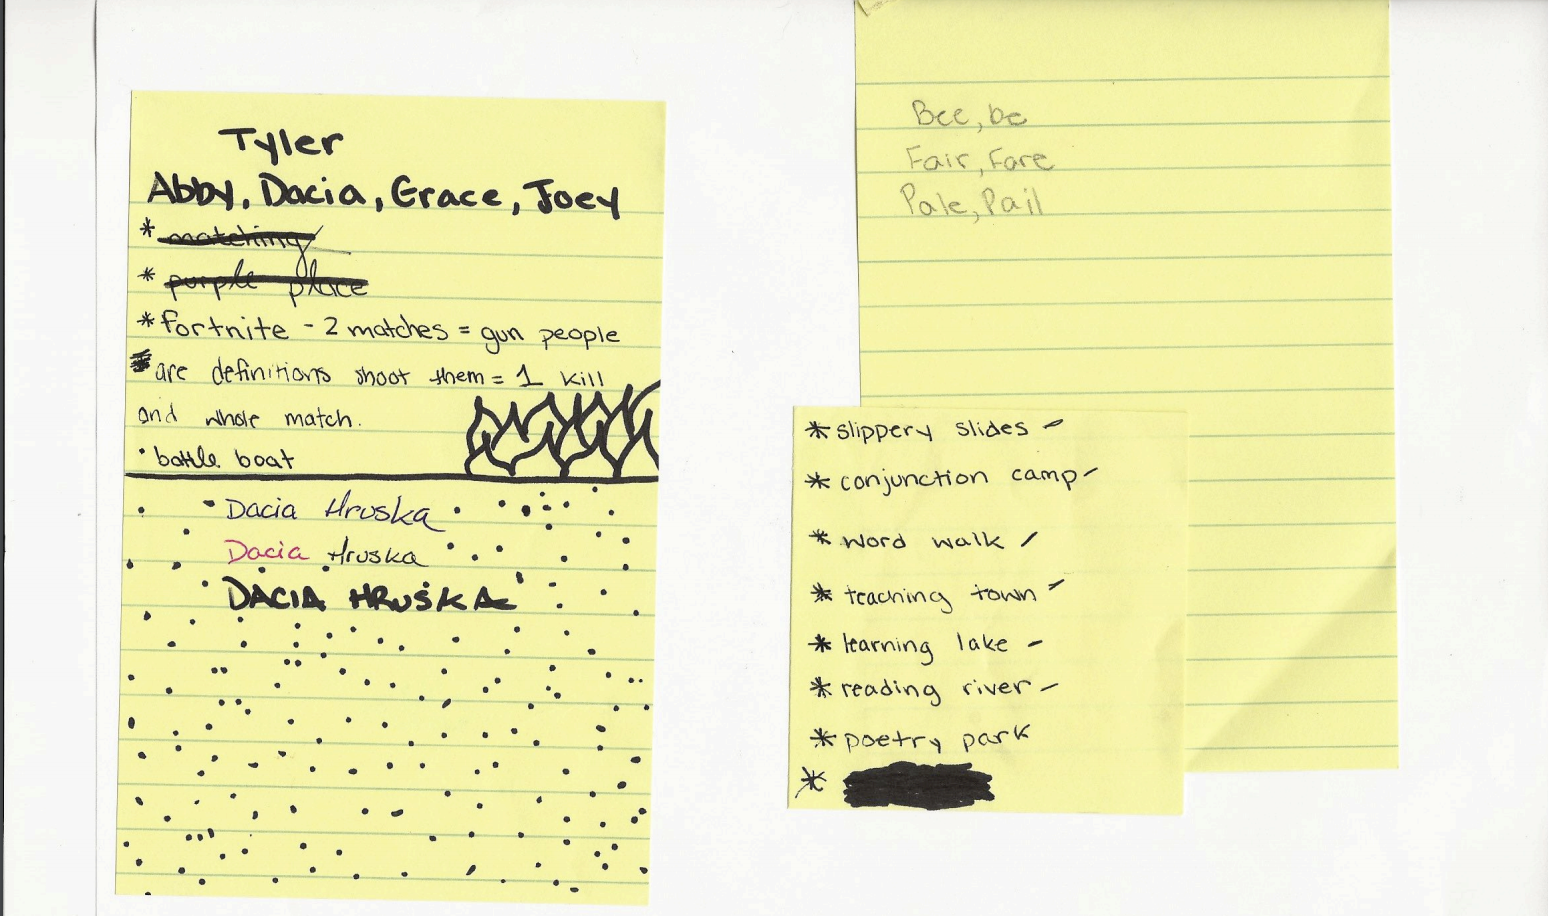 Tyler
Abby, Dacia, Grace, Joey
* matching
* purple place
* fortnite - 2 matches = gun people
* are definitions shoot them = 1 kill
and whole match.
• battle boat
Dacia Hruska
Dacia Hruska
DACIA HRUSKA
Bee, be
Fair, Fare
Pale, Pail
* slippery slides
* conjunction camp
* word walk
* teaching town
* learning lake
* reading river
* poetry park
*